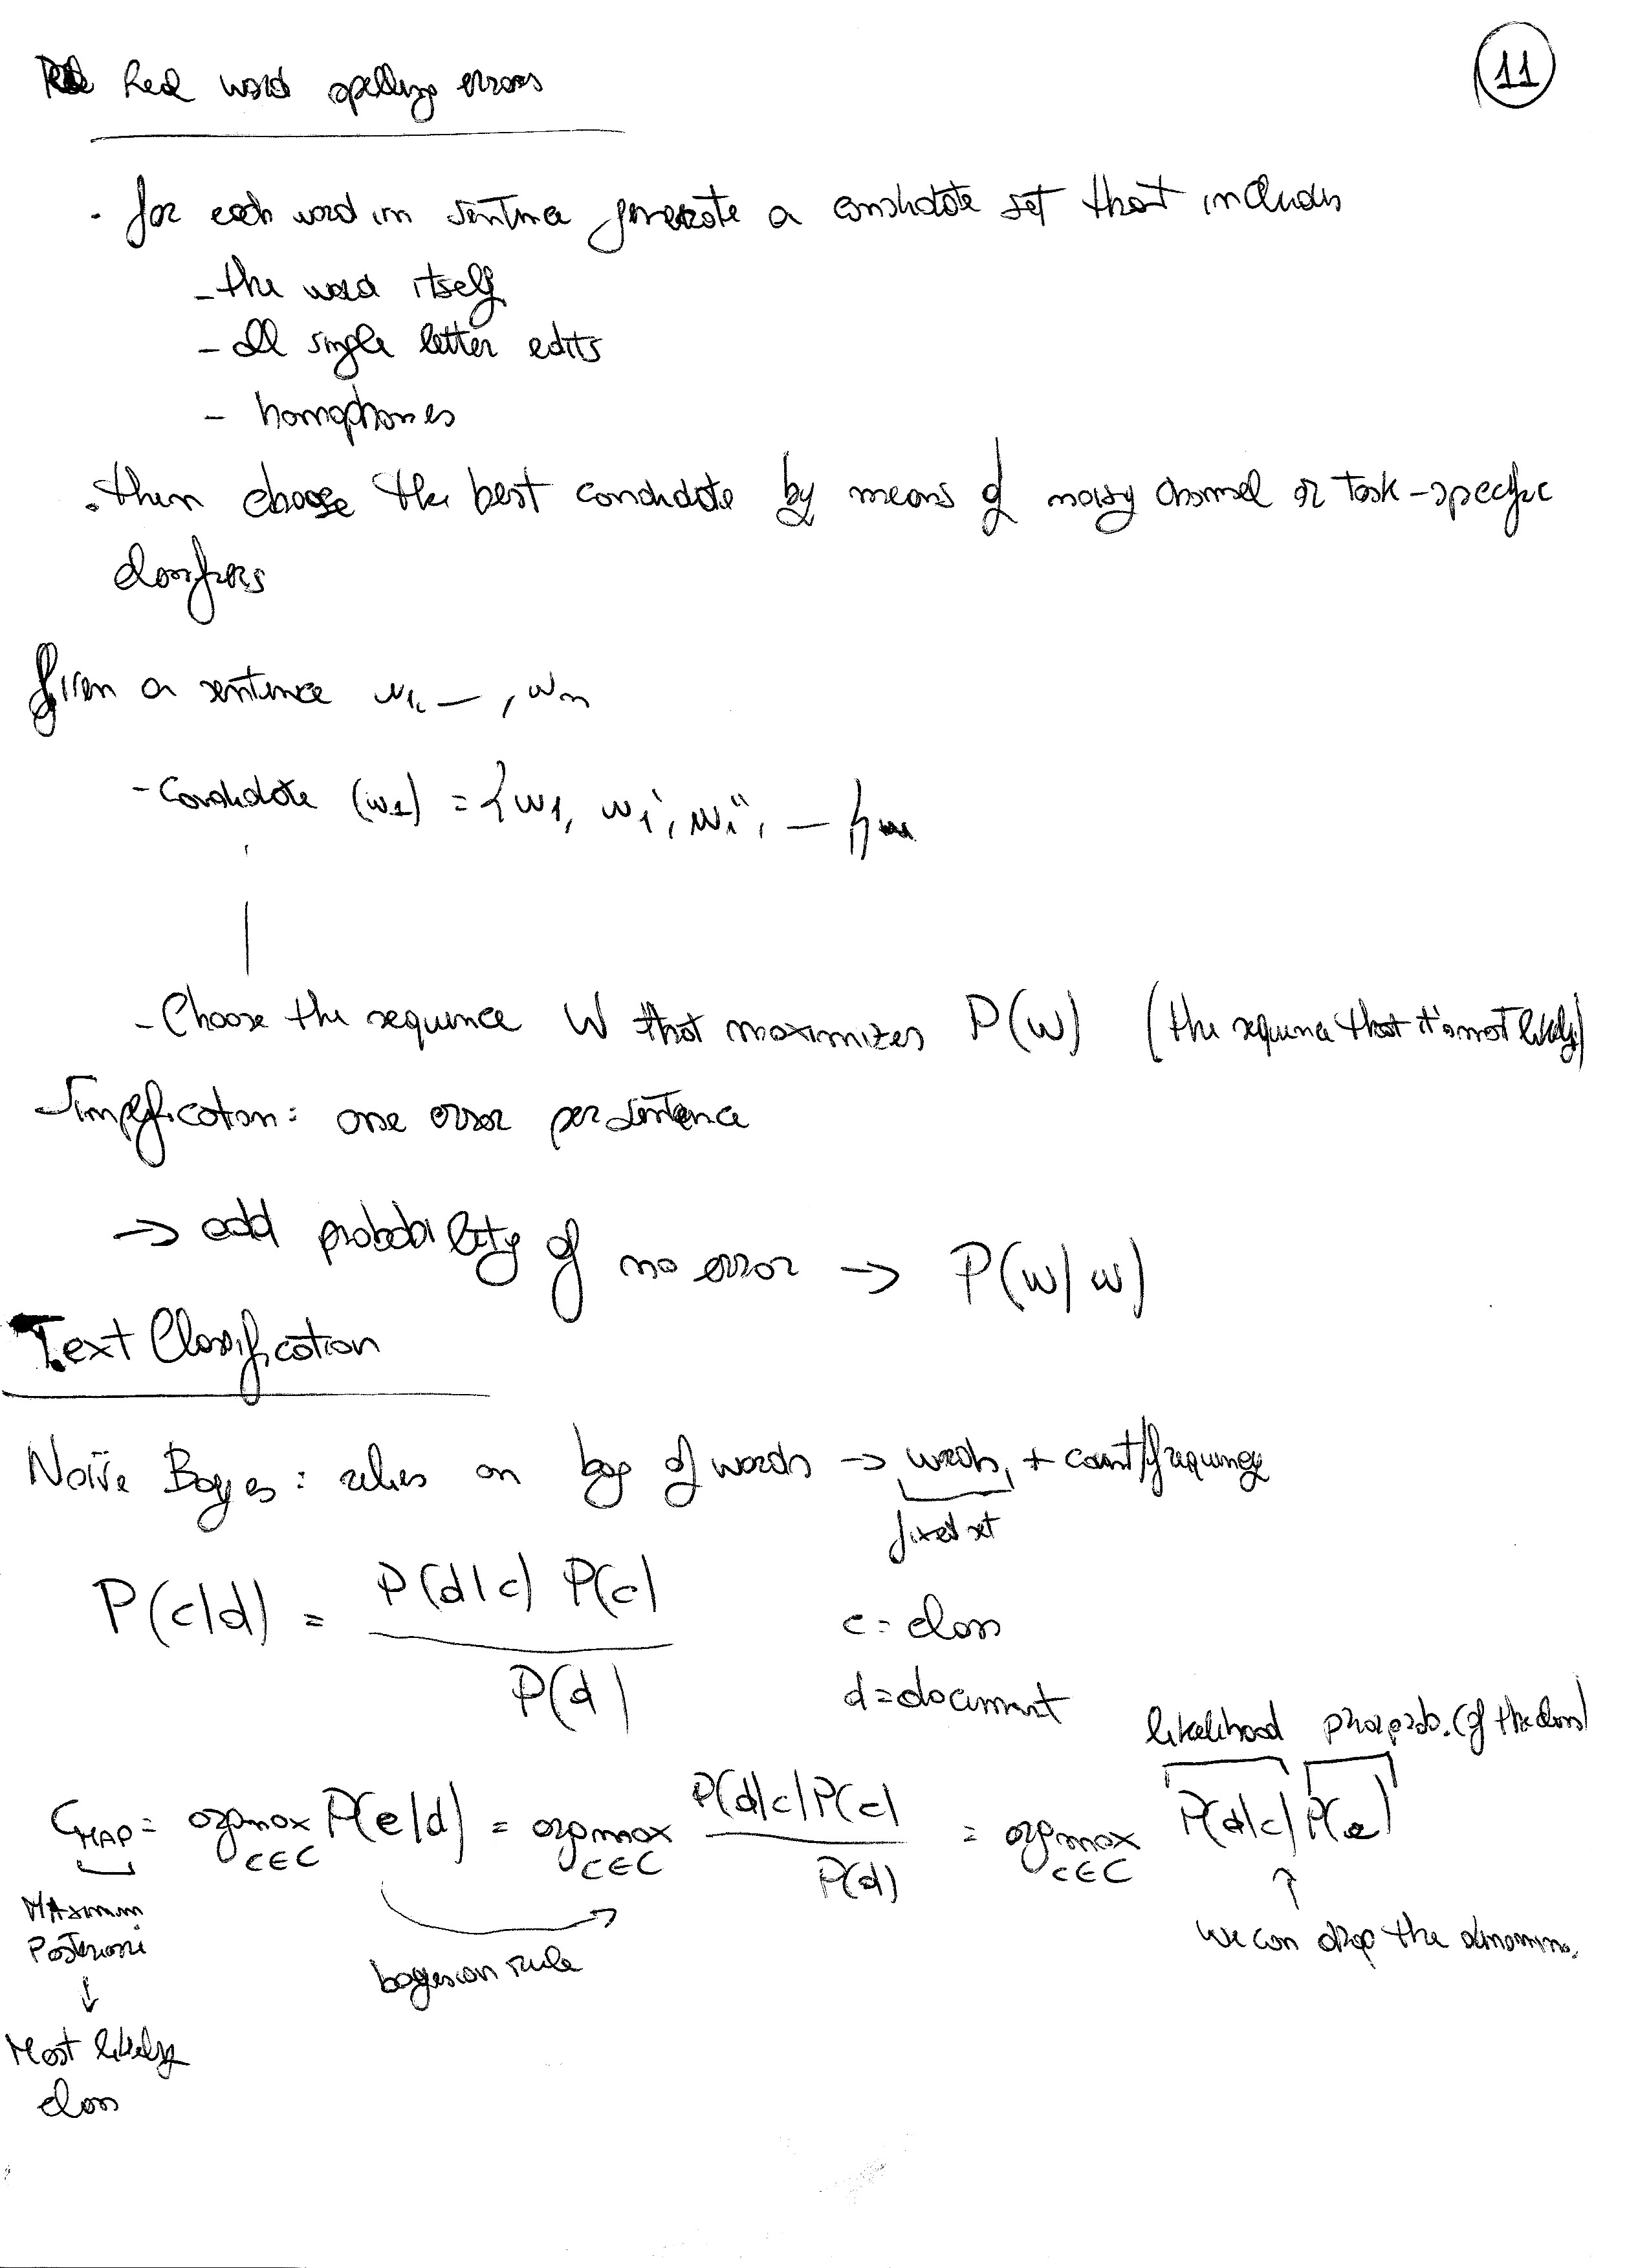 11
Real word spelling errors
· for each word in sentence generate a candidate set that includes
- the word itself
- all single letter edits
- homophones
· then choose the best candidate by means of noisy channel or task-specific
classifiers
given a sentence w1, — , wn
- Candidate (w1) = {w1, w1', w1'', — }
- Choose the sequence W that maximizes P(W) (the sequence that it's most likely)
Simplification: one error per sentence
→ add probability of no error → P(w|w)
Text Classification
Naïve Bayes: relies on bag of words → words, + count/frequency
fixed set
P(c|d) = P(d|c) P(c) / P(d)
c = class
d = document
likelihood prior prob. (of the class)
CMAP = argmax c∈C P(c|d) = argmax c∈C P(d|c) P(c) / P(d) = argmax c∈C P(d|c) P(c)
Maximum
Posteriori
bayesian rule
we can drop the denomin.
↓
Most likely
class